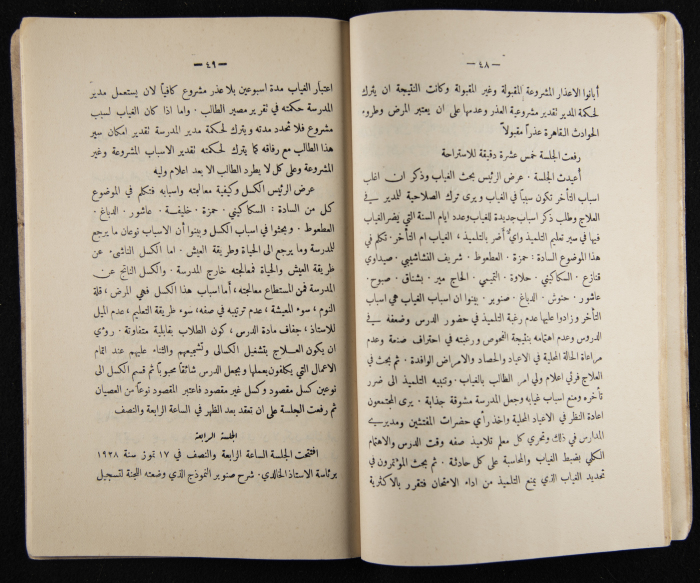 — ٤٨ —
أبانوا الاعذار المشروعة المقبولة وغير المقبولة وكانت النتيجة ان يترك
لحكمة المدير تقدير مشروعية العذر وعدمها على ان يعتبر المرض وطروء
الحوادث القاهرة عذراً مقبولاً
رفعت الجلسة خمس عشرة دقيقة للاستراحة
أعيدت الجلسة ٠ عرض الرئيس بحث الغياب وذكر ان اغلب
اسباب التأخر تكون سبباً في الغياب ويرى ترك الصلاحية للمدير في
العلاج وطلب ذكر اسباب جديدة للغياب وعدد ايام السنة التي يضر الغياب
فيها في سير تعليم التلميذ واي أضر بالتلميذ ، الغياب ام التأخر ٠ تكلم في
هذا الموضوع السادة : حمزة ٠ العطعوط ٠ شريف النشاشيبي ٠ صيداوي
قنازع ٠ السكاكيني ٠ حلاوة ٠ التميمي ٠ الحاج مير ٠ بشناق ٠ صبوح ٠
عاشور ٠ حنوش ٠ الدباغ ٠ صنوبر ٠ بينوا ان اسباب الغياب هي اسباب
التأخر وزادوا عليها عدم رغبة التلميذ في حضور الدرس وضعفه في
الدروس وعدم اهتمامه بنتيجة الفحوص ورغبته في احتراف صنعة وعدم
مراعاة الحالة المحلية في الاعياد والحصاد والامراض الوافدة ٠ ثم بحث في
العلاج فرئي اعلام ولي امر الطالب بالغياب ٠ وتنبيه التلميذ الى ضرر
تأخره ومنع اسباب غيابه وجعل المدرسة مشوقة جذابة ٠ يرى المجتمعون
اعادة النظر في الاعياد المحلية واخذ رأي حضرات المفتشين ومديري
المدارس في ذلك وتحري كل معلم تلاميذ صفه وقت الدرس والاهتمام
الكلي بضبط الغياب والمحاسبة على كل حادثة ٠ ثم بحث المؤتمرون في
تحديد الغياب الذي يمنع التلميذ من اداء الامتحان فتقرر بالاكثرية
— ٤٩ —
اعتبار الغياب مدة اسبوعين بلا عذر مشروع كافياً لان يستعمل مدير
المدرسة حكمته في تقرير مصير الطالب ٠ واما اذا كان الغياب لسبب
مشروع فلا تحدد مدته ويترك لحكمة مدير المدرسة تقدير امكان سير
هذا الطالب مع رفاقه كما يترك لحكمته تقدير الاسباب المشروعة وغير
المشروعة وعلى كل لا يطرد الطالب الا بعد اعلام وليه
عرض الرئيس الكسل وكيفية معالجته واسبابه فتكلم في الموضوع
كل من السادة : السكاكيني ٠ حمزة ٠ خليفة ٠ عاشور ٠ الدباغ ٠
العطعوط ٠ وبحثوا في اسباب الكسل وبينوا أن الاسباب نوعان ما يرجع
للمدرسة وما يرجع الى الحياة وطريقة العيش ٠ اما الكسل الناشئ عن
طريقة العيش والحياة فمعالجته خارج المدرسة ٠ والكسل الناتج عن
المدرسة فمن المستطاع معالجته ، أما اسباب هذا الكسل فهي المرض ، قلة
النوم ، سوء المعيشة ، عدم ترتيبه في صفه، سوء طريقة التعليم ، عدم الميل
للاستاذ ، جفاف مادة الدرس ، كون الطلاب بقابلية متفاوتة ٠ رؤي
ان يكون العلاج بتشغيل الكسالى وتشجيعهم والثناء عليهم عند اتمام
الاعمال التي يكلفون بعملها وبجعل الدرس شائقاً محبوباً ثم قسم الكسل الى
نوعين كسل مقصود وكسل غير مقصود فاعتبر المقصود نوعاً من العصيان
ثم رفعت الجلسة على ان تعقد بعد الظهر في الساعة الرابعة والنصف
الجلسة الرابعة
افتتحت الجلسة الساعة الرابعة والنصف في ١٧ تموز سنة ١٩٣٨
برئاسة الاستاذ الخالدي ٠ شرح صنوبر النموذج الذي وضعته اللجنة لتسجيل